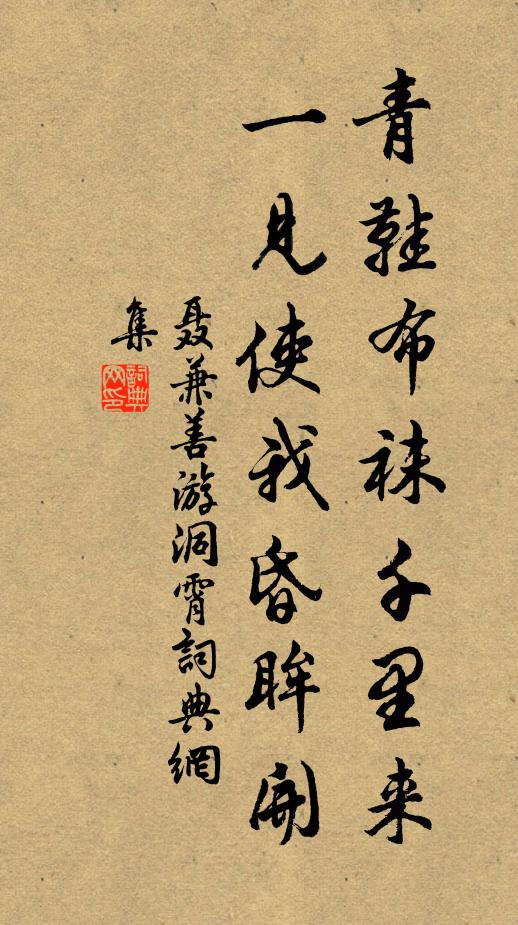 青鞋布袜千里来
一见使我昏眸开
聂兼善游洞霄詞典網
集
詞典网印